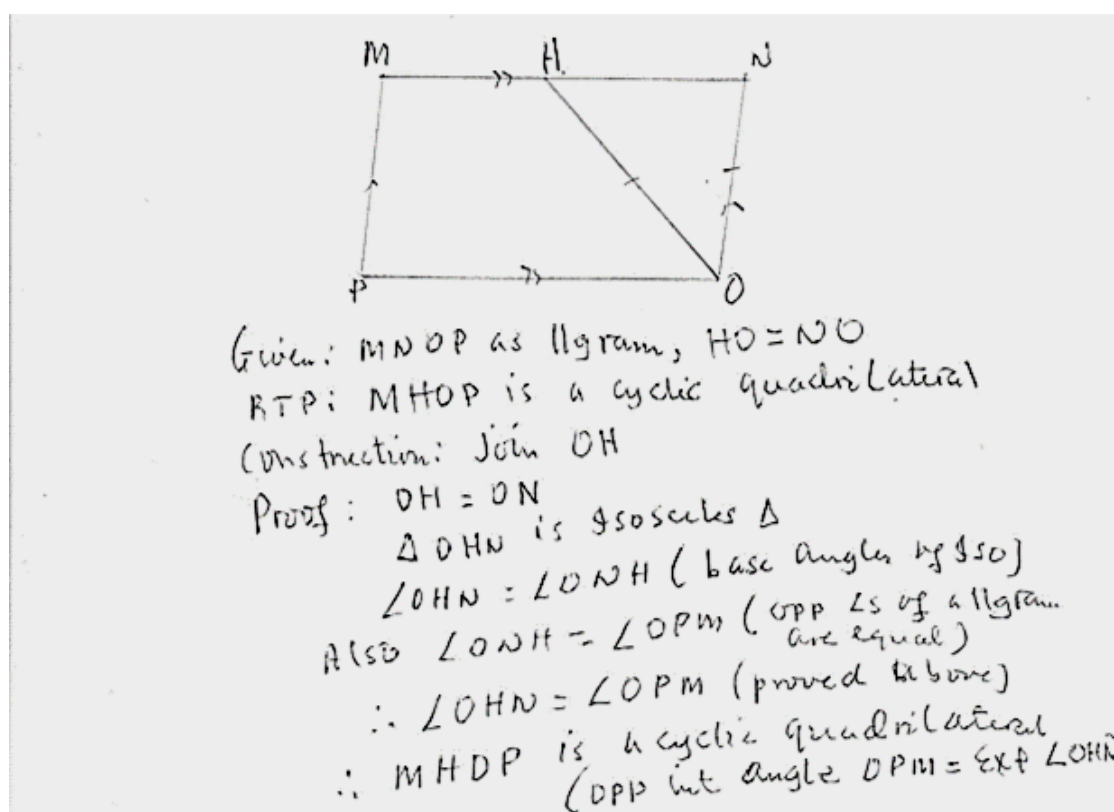 M H. N
P O
Given: MNOP as llgram, HO = NO
RTP: MHOP is a cyclic quadrilateral
Construction: Join OH
Proof: OH = ON
Δ OHN is Isosceles Δ
∠OHN = ∠ONH (base angles of Iso)
Also ∠ONH = ∠OPM (opp ∠s of a llgram
are equal)
∴ ∠OHN = ∠OPM (proved above)
∴ MHOP is a cyclic quadrilateral
(opp int angle OPM = ext ∠OHN